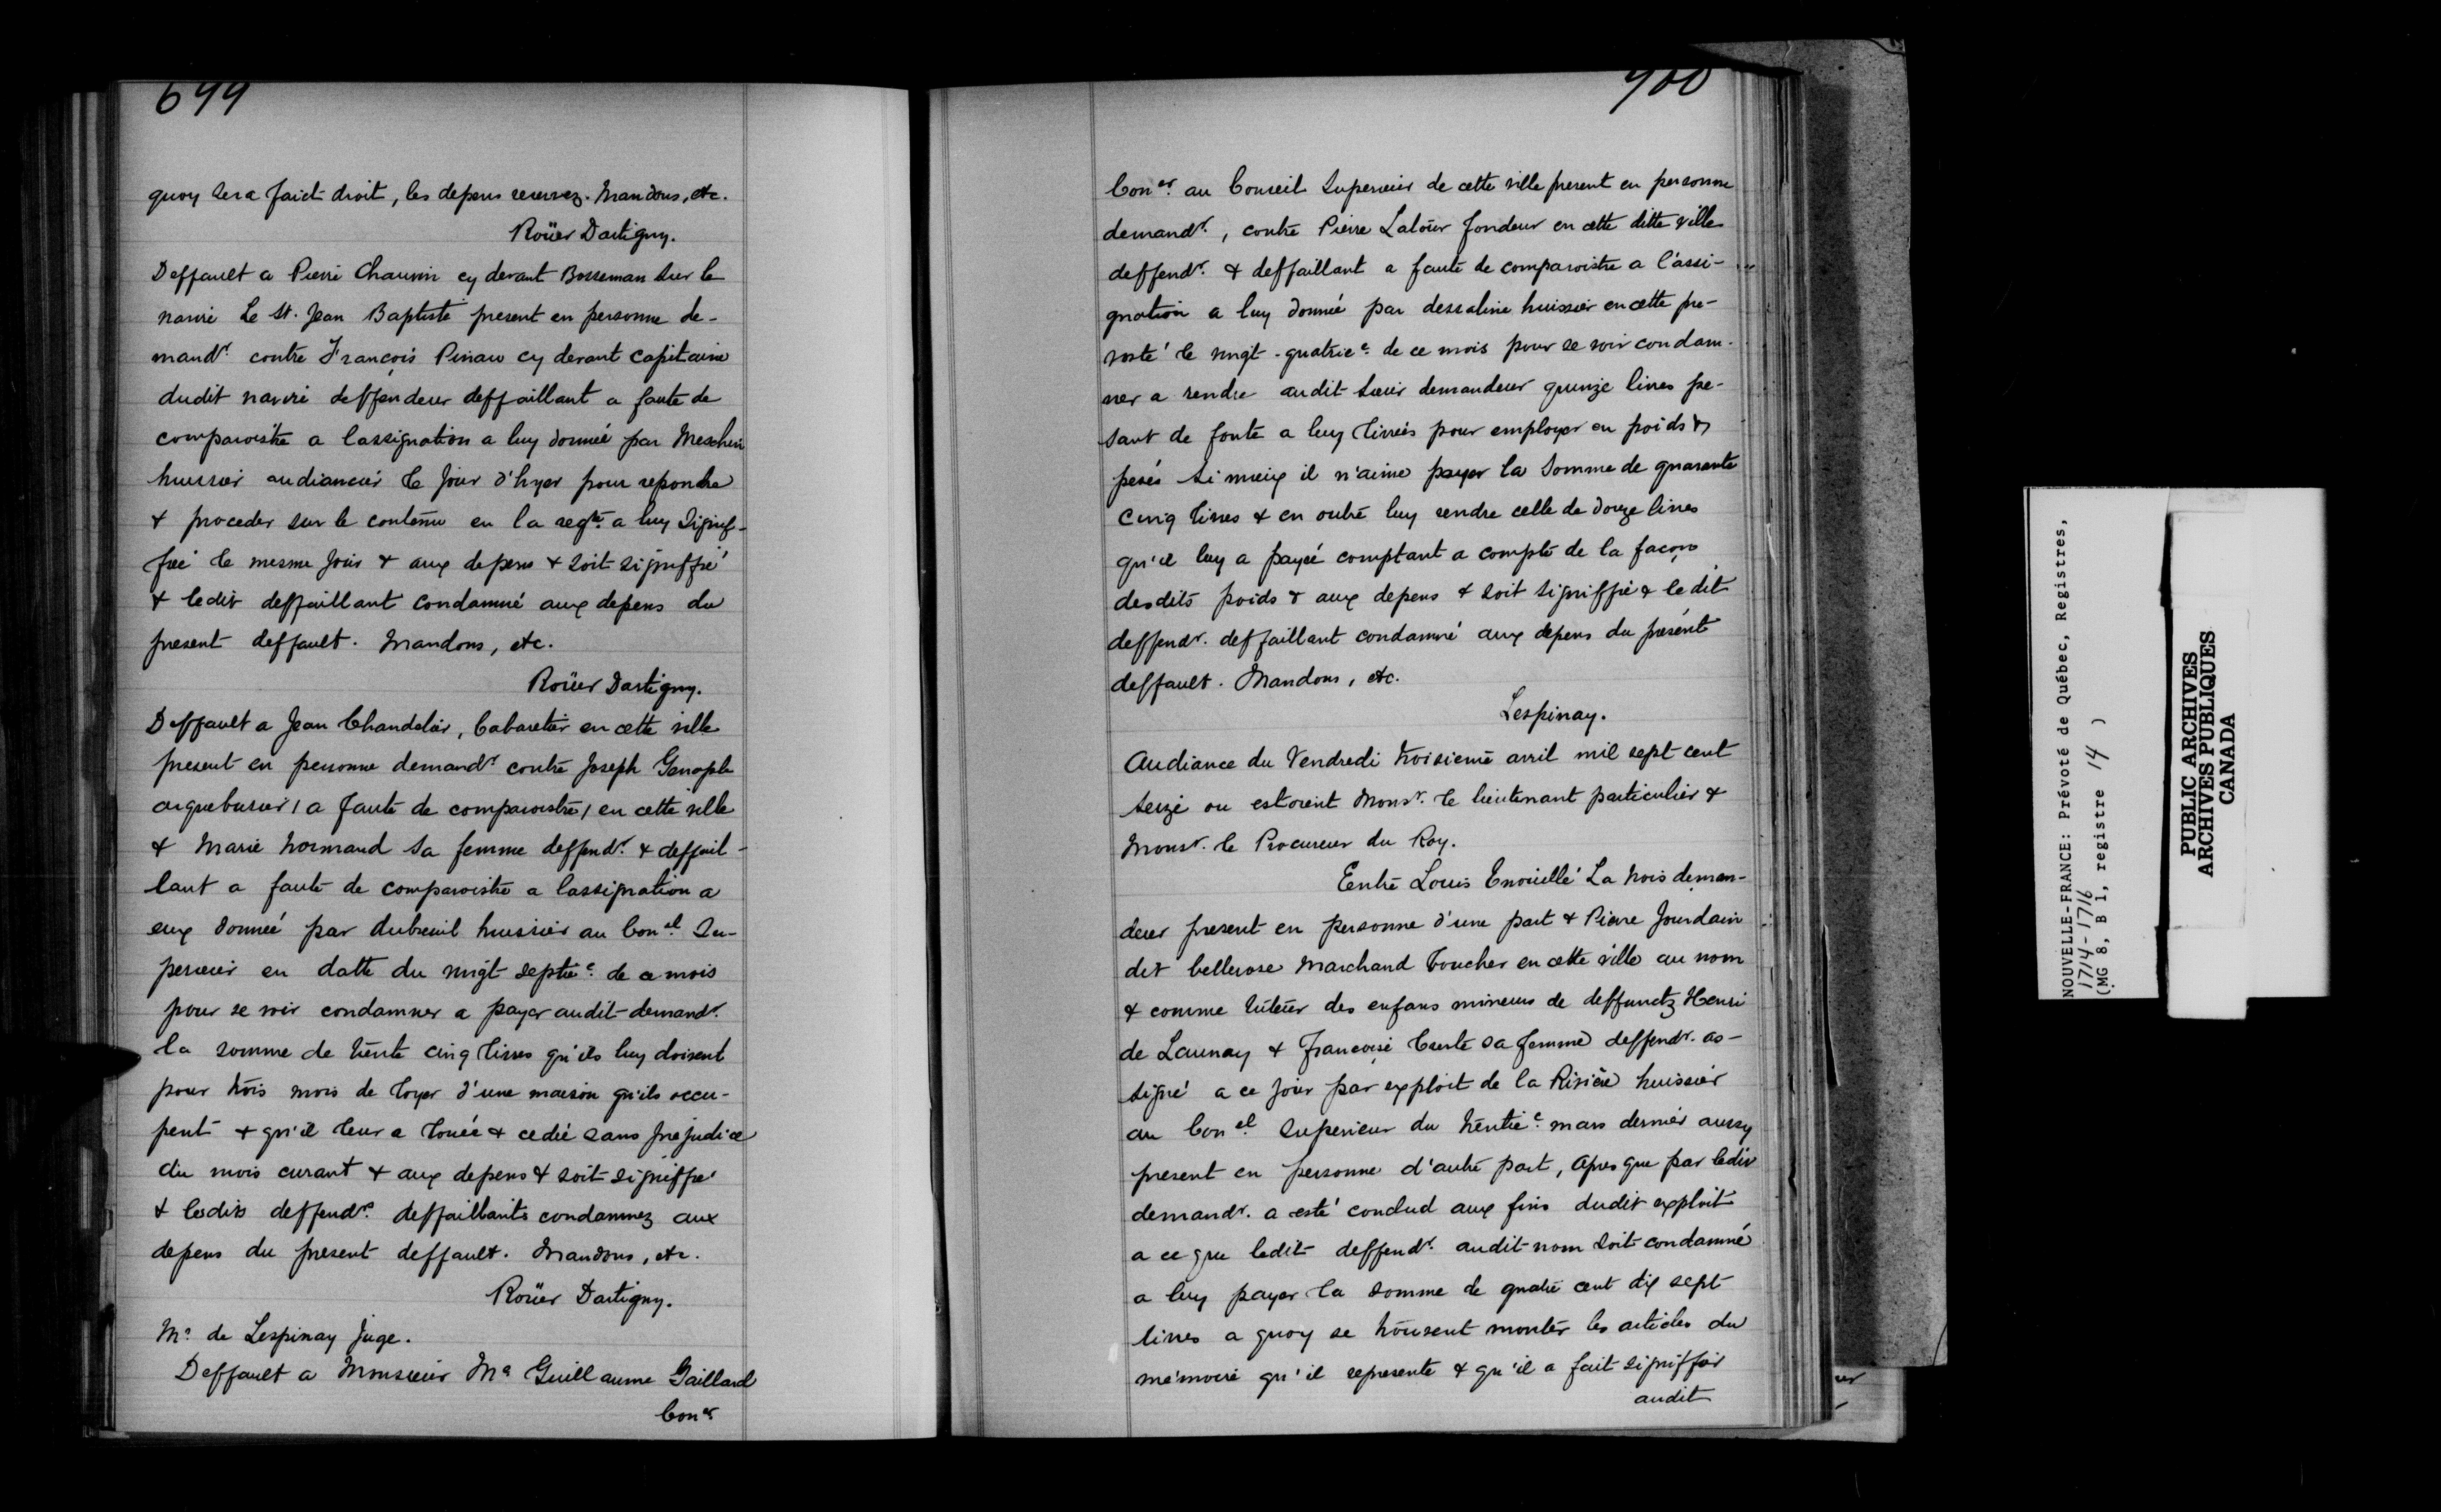 699
quoy sera faict droit, les depens reservez. Mandons, etc.
Roüer Dartigny.
Deffault a Pierre Chauvin cy devant Bosseman sur le
navire Le St. Jean Baptiste present en personne de-
mandr. contre François Pinau cy devant capitaine
dudit navire deffendeur deffaillant a faute de
comparoistre a lassignation a luy donnée par Meschin
huissier audiancier le jour d'hyer pour repondre
& proceder sur le contenu en la reqte. a luy signif-
fiée le mesme jour & aux depens & soit signiffié
& ledit deffaillant condamné aux depens du
present deffault. Mandons, etc.
Roüer Dartigny.
Deffault a Jean Chandelier, Cabaretier en cette ville
present en personne demandr. contre Joseph Genaple
arquebusier / a faute de comparoistre / en cette ville
& Marie Normand sa femme deffendr. & deffail-
lant a faute de comparoistre a lassignation a
eux donnée par dubreuil huissier au Conel. Su-
perieur en datte du vingt septie. de ce mois
pour se voir condamner a payer audit demandr.
la somme de trente cinq livres qu'ils luy doivent
pour trois mois de loyer d'une maison qu'ils occu-
pent & qu'il leur a louée & cedée sans prejudice
du mois curant & aux depens & soit signiffié
& lesdits deffendrs. deffaillants condamnez aux
depens du present deffault. Mandons, etc.
Roüer Dartigny.
Mr. de Lespinay Juge.
Deffault a Monsieur Me Guillaume Gaillard
Coner.
700
Coner. au Conseil Superieur de cette ville present en personne
demandr., contre Pierre Latour fondeur en cette ditte ville
deffendr. & deffaillant a faute de comparoistre a l'assi-
gnation a luy donnée par dessaline huissier en cette pre-
vosté le vingt-quatrie. de ce mois pour se voir condam-
ner a rendre audit sieur demandeur quinze livres pe-
sant de fonte a luy livrées pour employer en poids &
pesés si mieux il n'aime payer la somme de quarante
cinq livres & en outre luy rendre celle de douze livres
qu'il luy a payée comptant a compte de la façon
desdits poids & aux depens & soit signiffié & le dit
deffendr. deffaillant condamné aux depens du présent
deffault. Mandons, etc.
Lespinay.
Audiance du Vendredi troisieme avril mil sept cent
seize ou estoient Monsr. le lieutenant particulier &
Monsr. le Procureur du Roy.
Eentre Louis Enouillé La nois deman-
deur present en personne d'une part & Pierre Jourdain
dit bellerose Marchand boucher en cette ville au nom
& comme tuteur des enfans mineurs de deffunctz Henri
de Launay & Françoise sa femme deffendr. as-
signé a ce jour par exploit de la Riviere huissier
au Conel. Superieur du trentie. mars dernier aussy
present en personne d'autre part, Apres que par ledit
demandr. a esté conclud aux fins dudit exploit
a ce que ledit deffendr. audit nom soit condamné
a luy payer la somme de quatre cent dix sept
livres a quoy se trouvent monter les articles du
mémoire qu'il represente & qu'il a fait signiffier
audit
NOUVELLE-FRANCE: Prévoté de Québec, Registres,
1714-1716
(MG 8, B 1, registre 14 )
PUBLIC ARCHIVES
ARCHIVES PUBLIQUES
CANADA